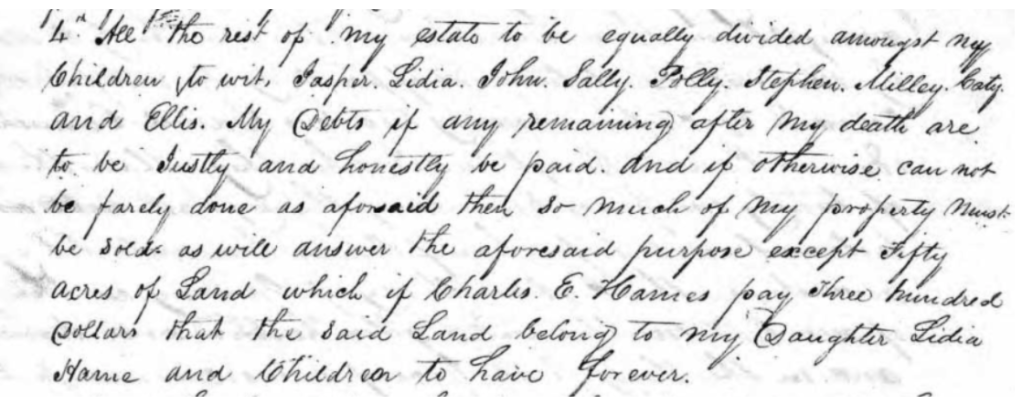 4th All the rest of my estate to be equally divided amongst my
Children, to wit, Jasper. Lidia. John. Sally. Polly. Stephen. Milley. Caty.
and Ellis. My Debts if any remaining after my death are
to be Justly and honestly be paid. and if otherwise can not
be farely done as aforesaid then so much of my property must
be sold as will answer the aforesaid purpose except Fifty
acres of Land which if Charles. E. Hames pay Three hundred
Dollars that the said Land belong to my Daughter Lidia
Hame and Children to have forever.